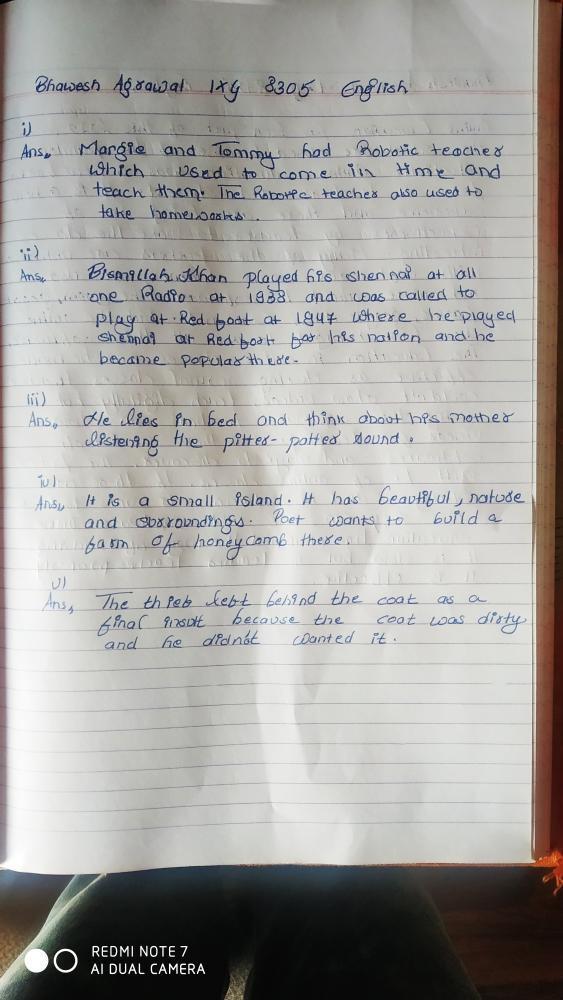 Bhawesh Agrawal IXG 8305 English
i)
Ans, Margie and Tommy had Robotic teacher
which used to come in time and
teach them. The Robotic teacher also used to
take homeworks.
ii)
Ans, Bismillah Khan played his shennai at all
one Radio at 1938 and was called to
play at Red foat at 1947 where he played
shennai at Red fort for his nation and he
became popular there.
iii)
Ans, He lies in bed and think about his mother
listening the pitter-patter sound.
iv)
Ans, It is a small island. It has beautiful, nature
and surroundings. Poet wants to build a
farm of honeycomb there.
v)
Ans, The thief left behind the coat as a
final insult because the coat was dirty
and he didn't wanted it.
REDMI NOTE 7
AI DUAL CAMERA